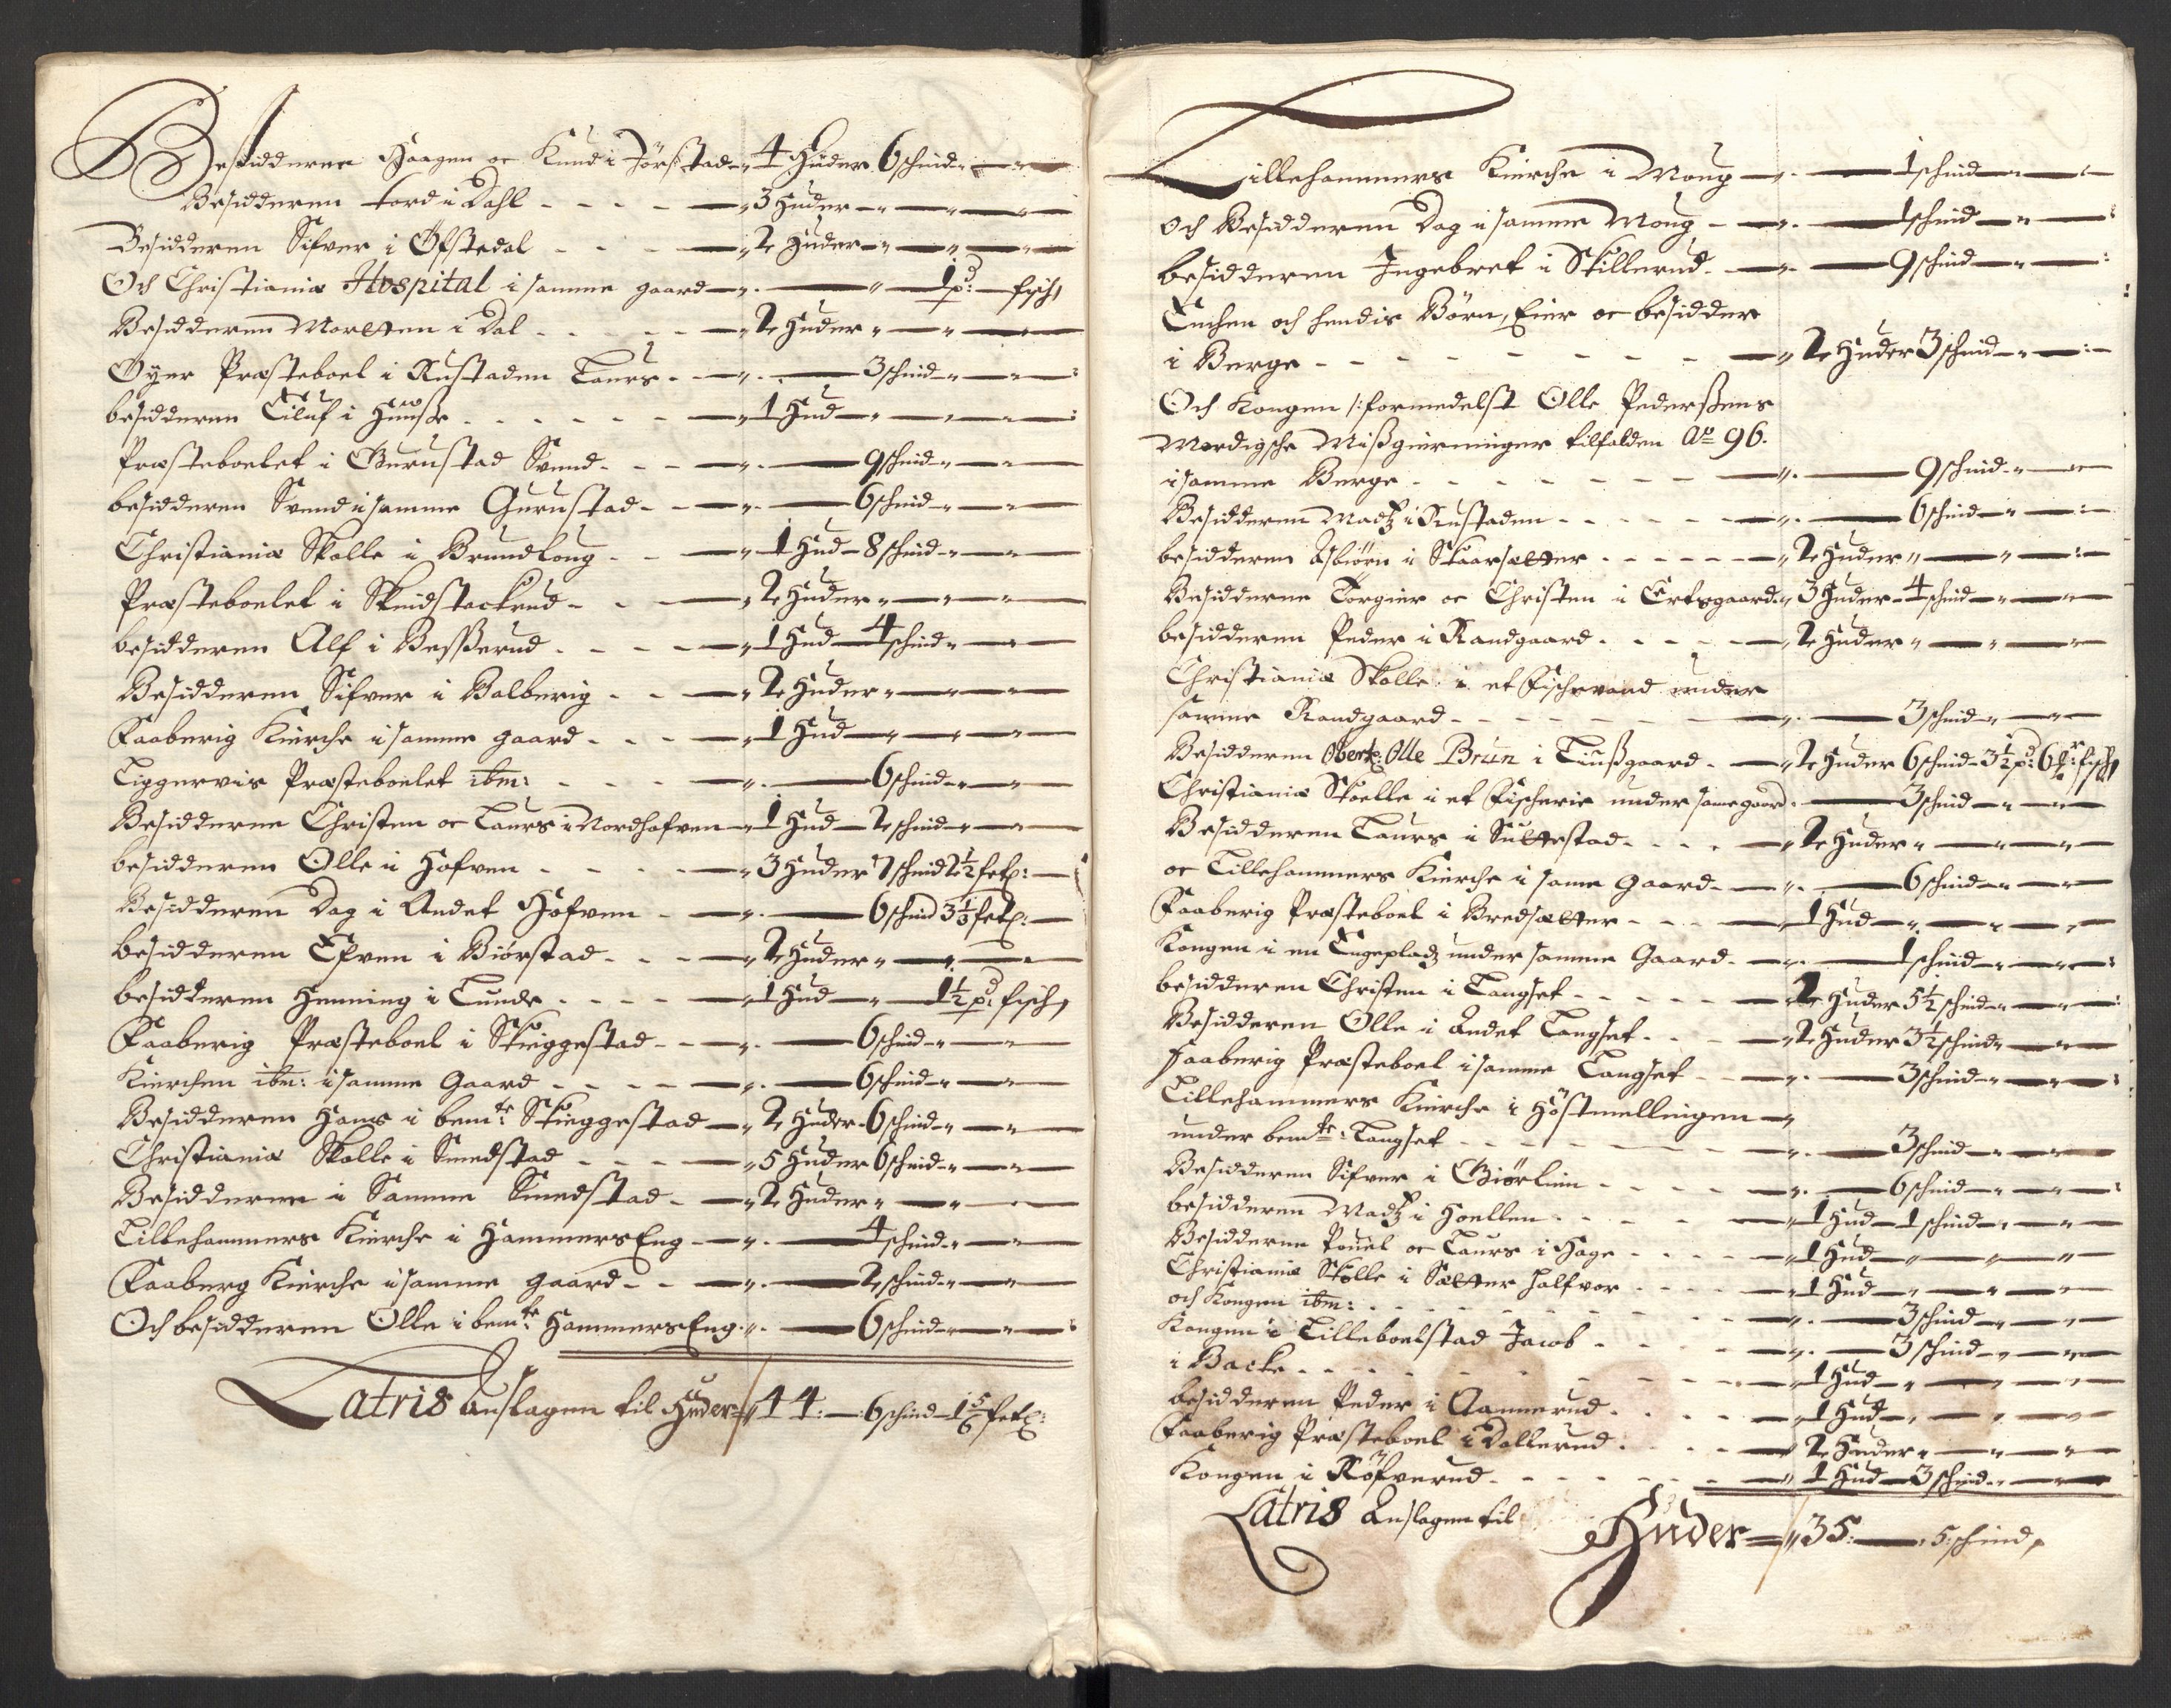 Besidderne Haagen oc Knud i Jörstad 4 Huder 6 schind
Besidderen Tord i Dahl 3 Huder
Besidderen Sifver i Öfstedal 2 Huder
Och Christiania Hospital i samme gaard 1 pd: fisch
Besidderen Mortten i Dal 2 Huder
Öyer Præsteboel i Rustaden Laurs 3 schind
besidderen Eiluf i Huusse 1 Hud
Præsteboelet i Gurustad Svend 9 schind
besidderen Svend i samme Gurustad 6 schind
Christianiæ Skolle i Brundloug 1 Hud 8 schind
Præsteboelet i Skindstackrud 2 Huder
besidderen Alf i Besserud 1 Hud 4 schind
Besidderen Sifver i Balberig 2 Huder
Faaberig Kirche i samme gaard 1 Hud
Liggervis Præsteboelet ibm: 6 schind
Besidderne Christen oc Laurs i Nordhafven 1 Hud 2 schind
besidderen Olle i Hofven 3 Huder 7 schind 2½ setz:
Besidderen Dag i Andet Hofven 6 schind 3⅓ setz:
besidderen Efven i Biörstad 2 Huder
besidderen Henning i Lunde 1 Hud 1½ pd: fisch
Faaberig Præsteboel i Skieggestad 6 schind
Kirchen ibm: i samme Gaard 6 schind
Besidderen Hans i bemte: Skieggestad 2 Huder 6 schind
Christianiæ Skolle i Smedstad 5 Huder 6 schind
Besidderne i Samme Smedstad 2 Huder
Lillehammers Kirche i HammersEng 4 schind
Faaberg Kirche i samme gaard 2 schind
Och besidderen Olle i bemte: HammersEng 6 schind
Latris Anslagen til Huder 44: 6 schind 1⅚ setz:
Lillehammers Kirche i Moug 1 schind
och Besidderen Dag i samme Moug 1 schind
besidderen Ingebret i Skillerud 9 schind
Enchen och hendis Börn, Eier oc besidder
i Berge 2 Huder 3 schind
Och Kongen /: formedelst Olle Pederssens
Mordigsche Missgierninger tilfalden Ao 96.
i samme Berge 9 schind
Besidderen Madtz i Rustaden 6 schind
besidderen Asbiörn i Skaarsetter 2 Huder
Besidderne Torgier oc Christen i Ertzgaard 3 Huder 4 schind
besidderen Peder i Randgaard 2 Huder
Christianiæ Skolle i et Fischevand under
samme Randgaard 3 schind
Besidderen Obertz: Olle Brun i Liussgaard 2 Huder 6 schind 3½ pd: 6 fisch
Christianiæ Skoelle i et Fischerie under same gaard 3 schind
Besidderen Laurs i Suttestad 2 Huder
oc Lillehammers Kirche i same Gaard 6 schind
Faaberig Præsteboel i Bredsetter 1 Hud
Kongen i en Engepladz under samme Gaard 1 schind
besidderen Christen i Langset 2 Huder 5½ schind
Besidderen Olle i Andet Langset 2 Huder 3½ schind
Faaberig Præsteboel i samme Langset 3 schind
Lillehammers Kirche i Höstmellingen
under bemte: Langset 3 schind
Besidderen Sifver i Giörlien 6 schind
besidderen Madtz i Hoellen 1 Hud 1 schind
Besidderne Pouel oc Laurs i Hage 1 Hud
Christianiæ Skolle i Sætter Halfvor 1 Hud
och Kongen ibm: 3 schind
Kongen i Lilleboelstad Jacob 3 schind
i Backe 1 Hud
besidderen Peder i Aannerud 1 Hud
Faaberig Præsteboel i Dallerud 2 Huder
Kongen i Röfverud 1 Hud 3 schind
Latris Anslagen til Huder 35: 5: schind